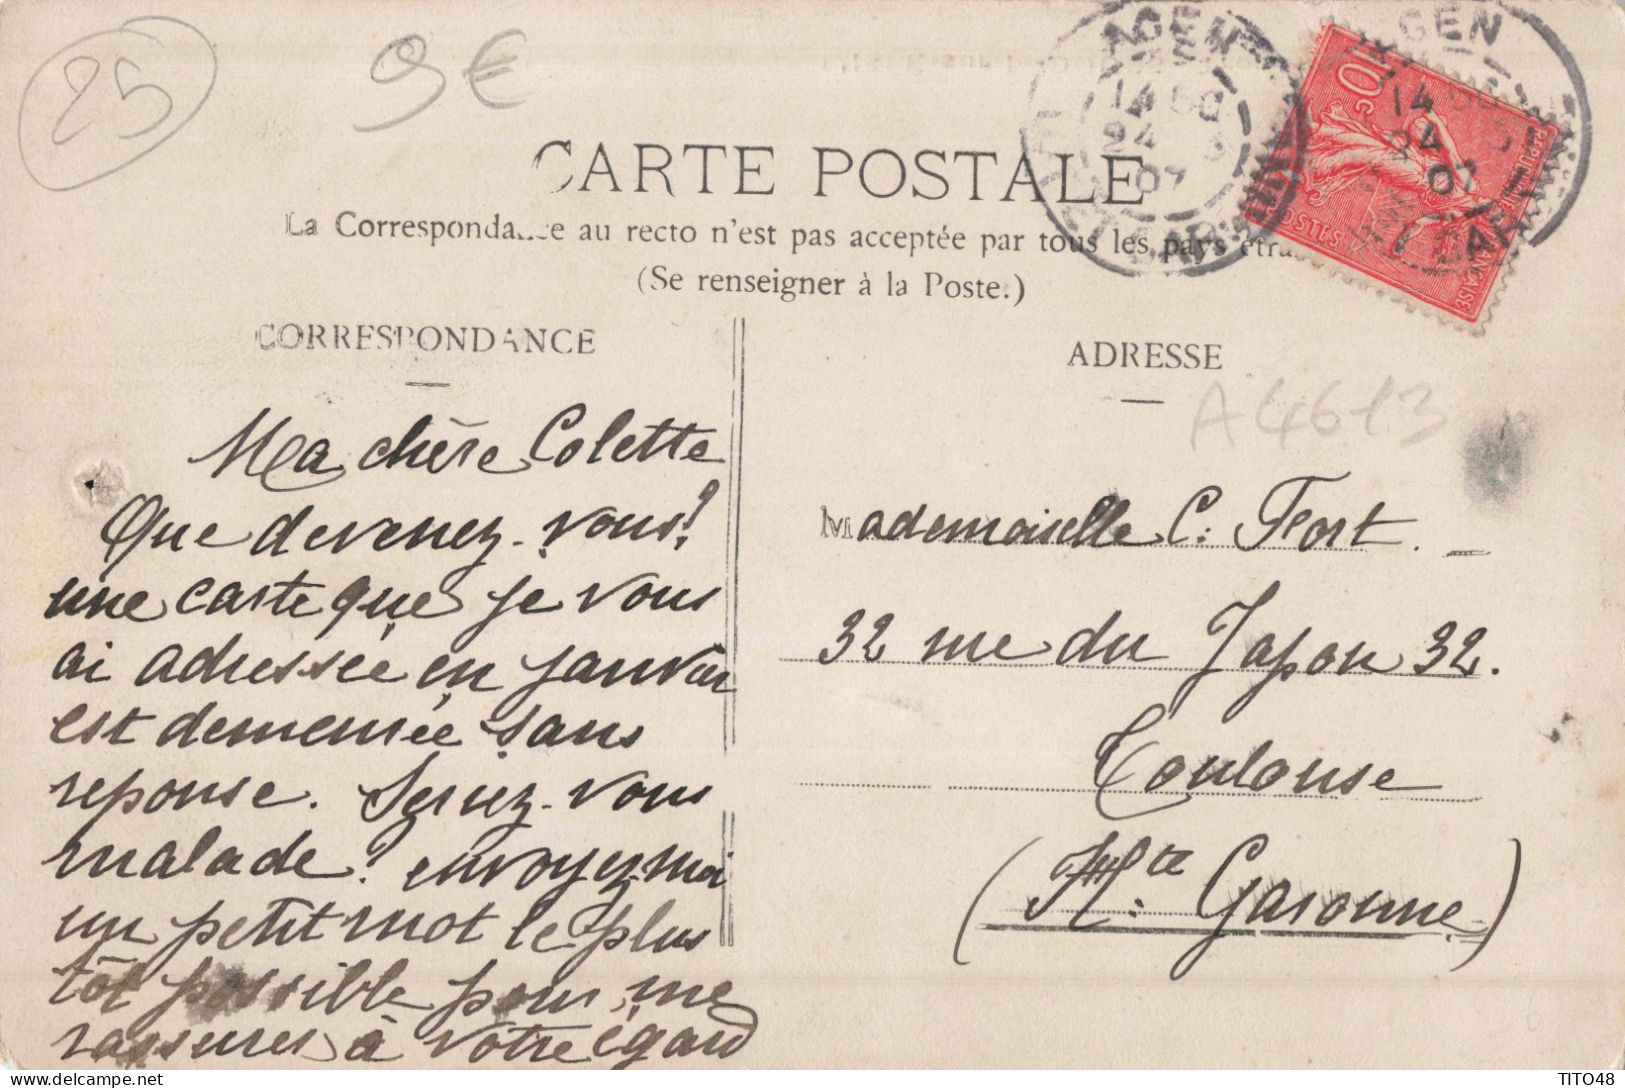 25
9€
AGEN
14 50
24 3
07
LOT-ET-GAR.
AGEN
14 50
24 3
07
10c
POSTES
REPUBLIQUE FRANÇAISE
CARTE POSTALE
La Correspondance au recto n'est pas acceptée par tous les pays étra
(Se renseigner à la Poste.)
CORRESPONDANCE
Ma chère Colette
Que devenez-vous?
une carte que je vous
ai adressée en janvier
est demeurée sans
reponse. Seriez-vous
malade? envoyez moi
un petit mot le plus
tôt possible pour me
rassurer à votre égard
ADRESSE
A4613
Mademoiselle C. Fort.
32 rue du Japon 32.
Toulouse
(Hte Garonne)
TITO48